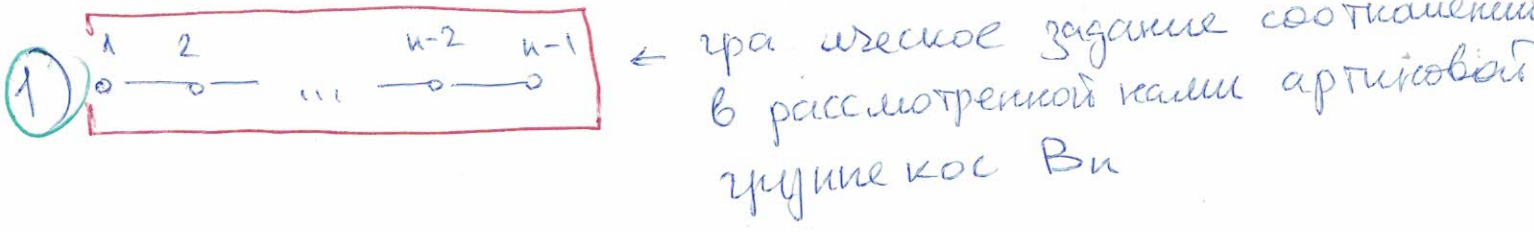 1 1 2 ... n-2 n-1 ← гра ическое задание соотношений
в рассмотренной нами артиновой
группе кос Bn